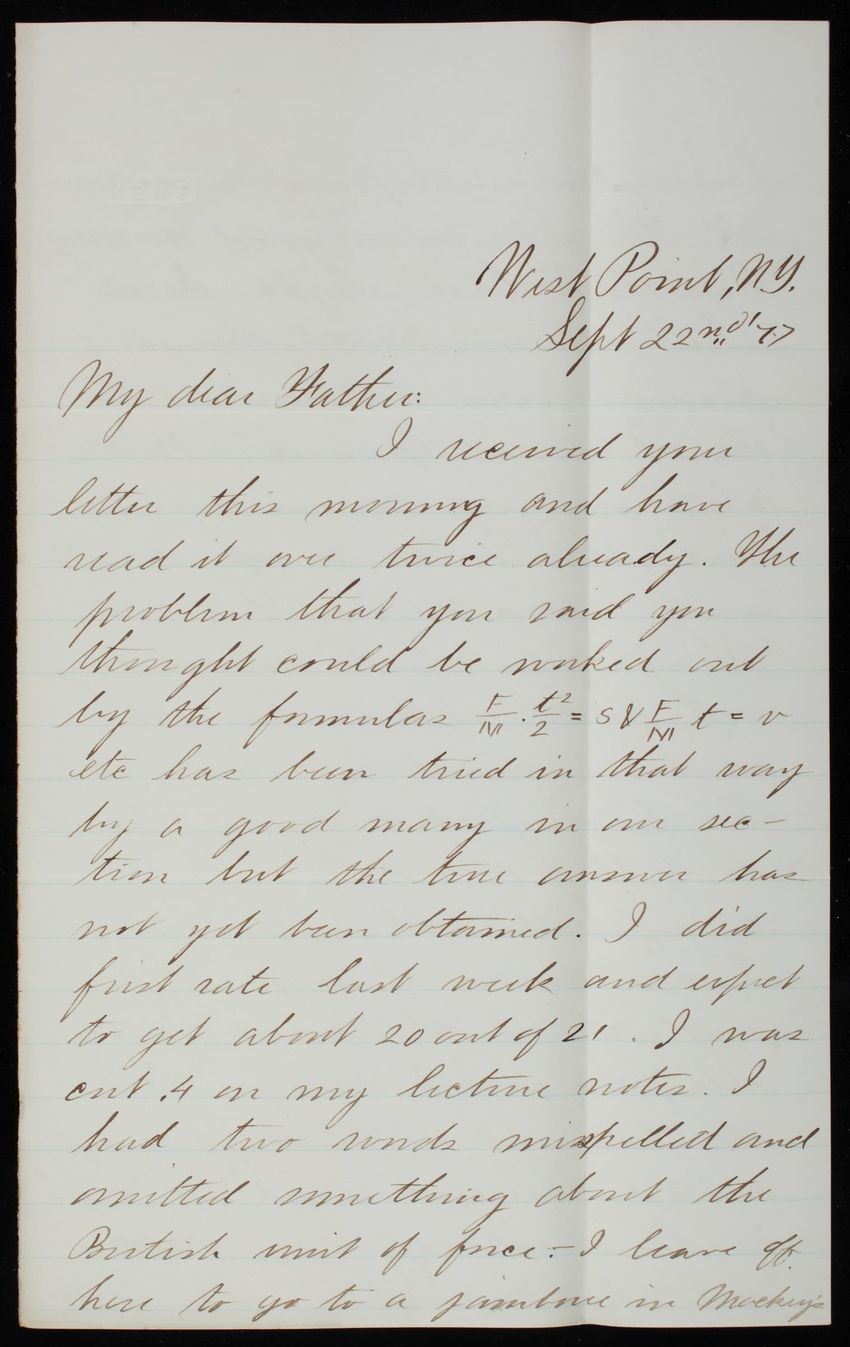 West Point, N.Y.
Sept 22nd '77
My dear Father:
I received your
letter this morning and have
read it over twice already. The
problem that you said you
thought could be worked out
by the formulas F/M · t²/2 = s & F/M t = v
etc has been tried in that way
by a good many in our sec-
tion but the true answer has
not yet been obtained. I did
first rate last week and expect
to get about 20 out of 21. I was
cut .4 on my lecture notes. I
had two words misspelled and
omitted something about the
British unit of force. - I leave off
here to go to a jamboree in Mackey's